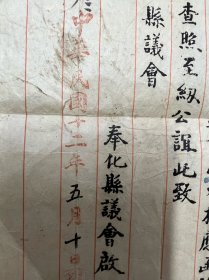 查照至紉公誼此致
縣議會
奉化縣議會啟
中華民國十二年五月十日